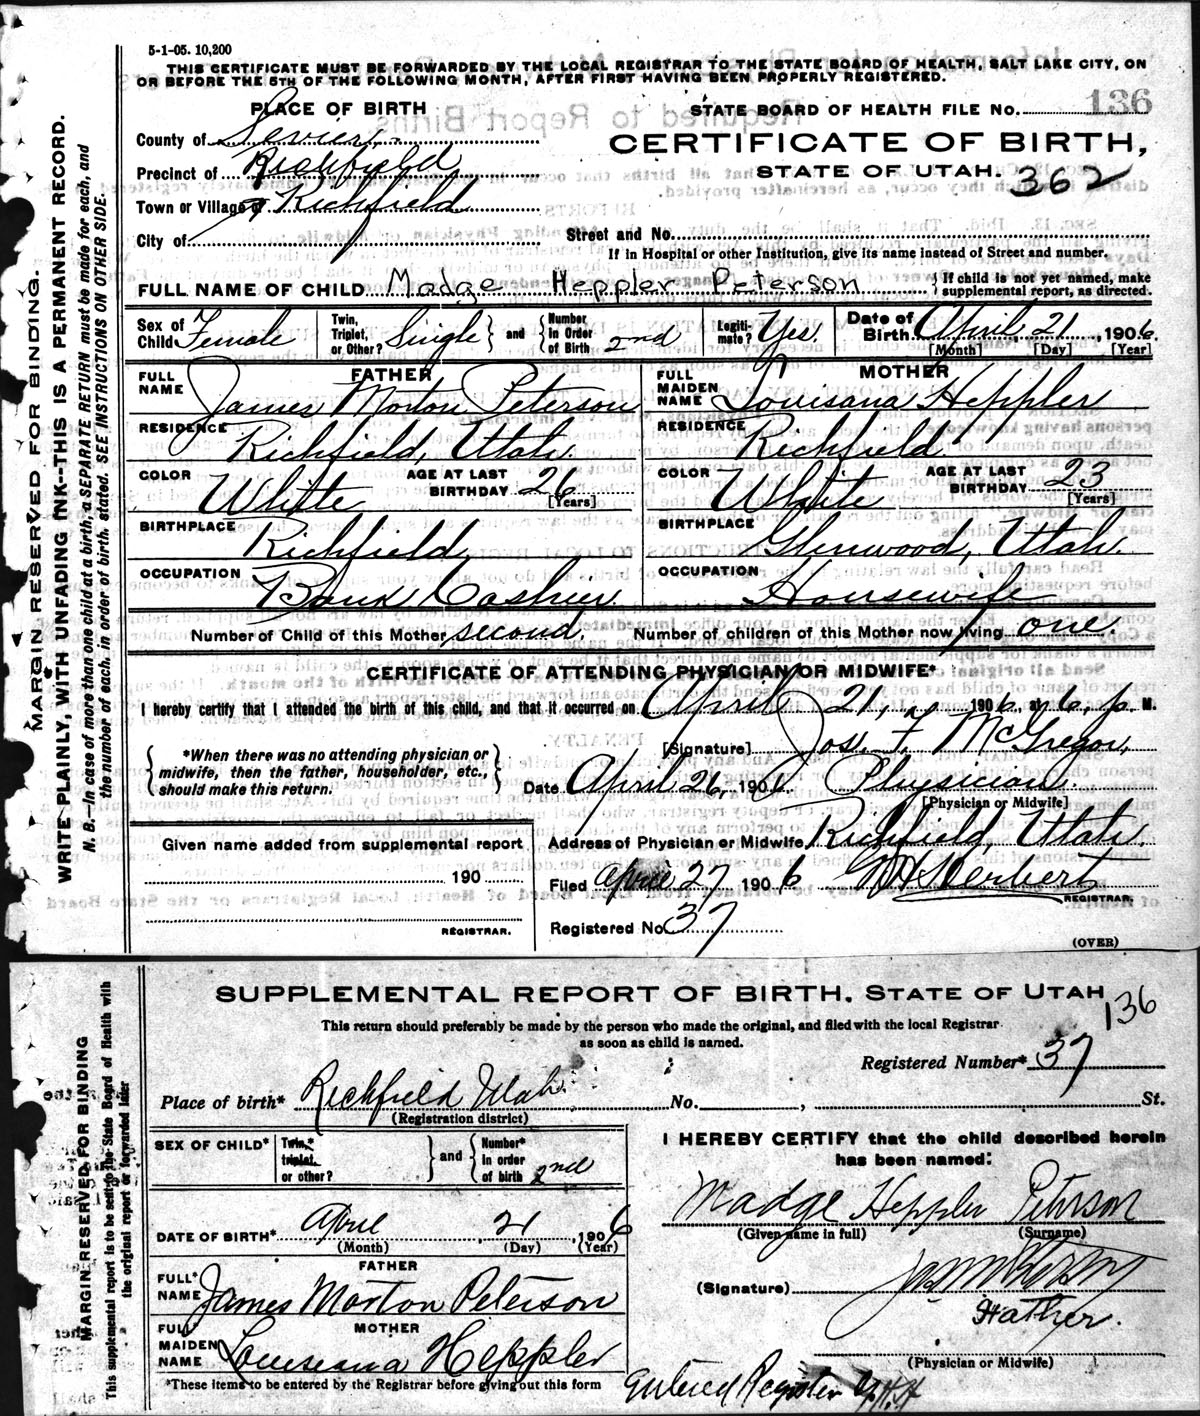 5-1-05. 10,200
THIS CERTIFICATE MUST BE FORWARDED BY THE LOCAL REGISTRAR TO THE STATE BOARD OF HEALTH, SALT LAKE CITY, ON
OR BEFORE THE 5TH OF THE FOLLOWING MONTH, AFTER FIRST HAVING BEEN PROPERLY REGISTERED.
PLACE OF BIRTH
STATE BOARD OF HEALTH FILE No. 136
County of Sevier,
CERTIFICATE OF BIRTH,
Precinct of Richfield
STATE OF UTAH. 362
Town or Village of Richfield
City of
Street and No.
If in Hospital or other Institution, give its name instead of Street and number.
FULL NAME OF CHILD Madge Heppler Peterson
{If child is not yet named, make
supplemental report, as directed.
Sex of Child Female
Twin, Triplet, or Other? Single } and { Number in Order of Birth 2nd
Legitimate? Yes.
Date of Birth April, 21, 1906.
[Month] [Day] [Year]
FATHER
MOTHER
FULL NAME James Morton Peterson
FULL MAIDEN NAME Louisana Heppler
RESIDENCE Richfield, Utah.
RESIDENCE Richfield
COLOR White AGE AT LAST BIRTHDAY 26 [Years]
COLOR White AGE AT LAST BIRTHDAY 23 [Years]
BIRTHPLACE Richfield
BIRTHPLACE Glenwood, Utah.
OCCUPATION Bank Cashier.
OCCUPATION Housewife
Number of Child of this Mother second. Number of children of this Mother now living one.
CERTIFICATE OF ATTENDING PHYSICIAN OR MIDWIFE*
I hereby certify that I attended the birth of this child, and that it occurred on April 21, 1906. at 6, p. M.
{*When there was no attending physician or
midwife, then the father, householder, etc.,
should make this return.}
[Signature] Jos. F. McGregor,
Date April 26, 1906 Physician.
[Physician or Midwife]
Given name added from supplemental report
190
REGISTRAR.
Address of Physician or Midwife Richfield, Utah.
Filed April 27 1906 Herbert
REGISTRAR.
Registered No. 37
(OVER)
MARGIN RESERVED FOR BINDING.
WRITE PLAINLY, WITH UNFADING INK--THIS IS A PERMANENT RECORD.
N. B.--In case of more than one child at a birth, a SEPARATE RETURN must be made for each, and
the number of each, in order of birth, stated. SEE INSTRUCTIONS ON OTHER SIDE.
SUPPLEMENTAL REPORT OF BIRTH. STATE OF UTAH
136
This return should preferably be made by the person who made the original, and filed with the local Registrar
as soon as child is named.
Registered Number* 37
Place of birth* Richfield Utah. No. , St.
(Registration district)
SEX OF CHILD* Twin,* triplet, or other? } and { Number* in order of birth 2nd
I HEREBY CERTIFY that the child described herein
has been named:
Madge Heppler Peterson
(Given name in full) (Surname)
DATE OF BIRTH* April 21, 1906
(Month) (Day) (Year)
FATHER
FULL* NAME James Morton Peterson
(Signature) Jas M Peterson
Father.
MOTHER
FULL MAIDEN NAME Louiseana Heppler
(Physician or Midwife)
*These items to be entered by the Registrar before giving out this form
Entered Register
MARGIN RESERVED FOR BINDING
This supplemental report is to be sent to the State Board of Health with
the original report or forwarded later